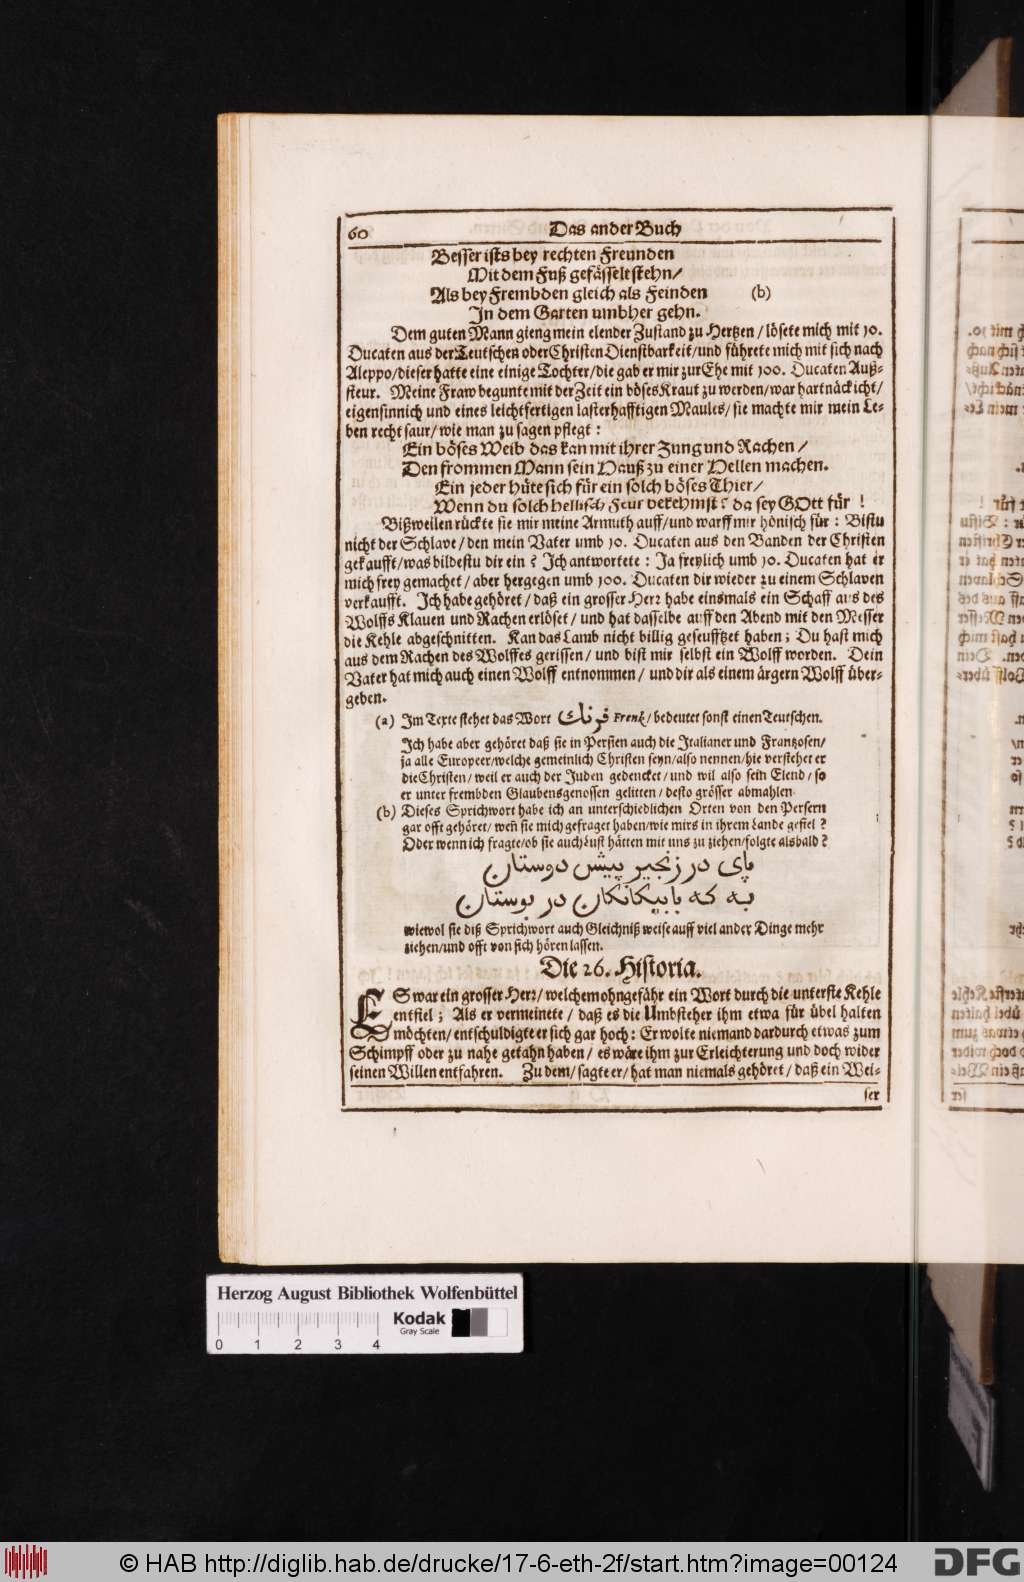 60 Das ander Buch
Besser ists bey rechten Freunden
Mit dem Fuß gefässelt stehn/
Als bey Frembden gleich als Feinden (b)
In dem Garten umbher gehn.
Dem guten Mann gieng mein elender Zustand zu Hertzen/ lösete mich mit 10.
Ducaten aus der Teutschen oder Christen Dienstbarkeit/ und führete mich mit sich nach
Aleppo/ dieser hatte eine einige Tochter/ die gab er mir zur Ehe mit 100. Ducaten Auß-
steur. Meine Fraw begunte mit der Zeit ein böses Kraut zu werden/ war hartnäckicht/
eigensinnich und eines leichtfertigen lasterhafftigen Maules/ sie machte mir mein Le-
ben recht saur/ wie man zu sagen pflegt:
Ein böses Weib das kan mit ihrer Zung und Rachen/
Den frommen Mann sein Hauß zu einer Hellen machen.
Ein jeder hüte sich für ein solch böses Thier/
Wenn du solch hellisch Feur bekehmst? da sey GOtt für!
Bißweilen rückte sie mir meine Armuth auff/ und warff mir hönisch für: Bistu
nicht der Schlave/ den mein Vater umb 10. Ducaten aus den Banden der Christen
gekaufft/ was bildestu dir ein? Ich antwortete: Ja freylich umb 10. Ducaten hat er
mich frey gemachet/ aber hergegen umb 100. Ducaten dir wieder zu einem Schlaven
verkaufft. Ich habe gehöret/ daß ein grosser Herr habe einsmals ein Schaff aus des
Wolffs Klauen und Rachen erlöset/ und hat dasselbe auff den Abend mit den Messer
die Kehle abgeschnitten. Kan das Lamb nicht billig geseufftzet haben; Du hast mich
aus dem Rachen des Wolffes gerissen/ und bist mir selbst ein Wolff worden. Dein
Vater hat mich auch einen Wolff entnommen/ und dir als einem ärgern Wolff über-
geben.
(a) Im Texte stehet das Wort فرنك Frenk/ bedeutet sonst einen Teutschen.
Ich habe aber gehöret daß sie in Persien auch die Italianer und Frantzosen/
ja alle Europeer/ welche gemeinlich Christen seyn/ also nennen/ hie verstehet er
die Christen/ weil er auch der Juden gedencket/ und wil also sein Elend/ so
er unter frembden Glaubensgenossen gelitten/ desto grösser abmahlen.
(b) Dieses Sprichwort habe ich an unterschiedlichen Orten von den Persern
gar offt gehöret/ weñ sie mich gefraget haben/ wie mirs in ihrem Lande gefiel?
Oder wenn ich fragte/ ob sie auch Lust hätten mit uns zu ziehen/ folgte alsbald?
پای در زنجیر پیش دوستان
به که بابیكانكان در بوستان
wiewol sie diß Sprichwort auch Gleichniß weise auff viel ander Dinge mehr
ziehen/ und offt von sich hören lassen.
Die 26. Historia.
ES war ein grosser Herr/ welchem ohngefähr ein Wort durch die unterste Kehle
entfiel; Als er vermeinete/ daß es die Umbsteher ihm etwa für übel halten
möchten/ entschuldigte er sich gar hoch: Er wolte niemand dardurch etwas zum
Schimpff oder zu nahe gethan haben/ es wäre ihm zur Erleichterung und doch wider
seinen Willen entfahren. Zu dem/ sagte er/ hat man niemals gehöret/ daß ein Wei-
ser
Herzog August Bibliothek Wolfenbüttel
Kodak
Gray Scale
0 1 2 3 4
© HAB http://diglib.hab.de/drucke/17-6-eth-2f/start.htm?image=00124
DFG